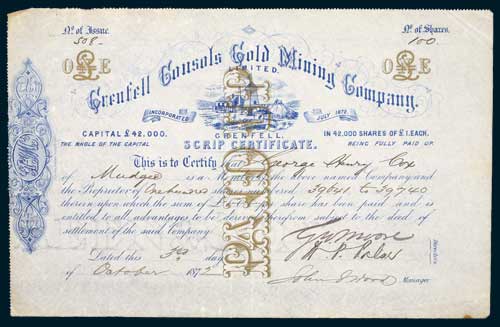 No. of Issue. No. of Shares.
508 100
O £ E O £ E
Grenfell Consols Gold Mining Company.
LIMITED.
INCORPORATED JULY 1872.
GRENFELL.
CAPITAL £42,000. IN 42,000 SHARES OF £1. EACH.
THE WHOLE OF THE CAPITAL BEING FULLY PAID UP.
SCRIP CERTIFICATE.
This is to Certify that George Henry Cox
of Mudgee is a Member of the above named Company and
the Proprietor of One hundred shares numbered 39641 to 39740
thereon upon which the sum of £1 per share has been paid and is
entitled to all advantages to be derived therefrom subject to the deed of
settlement of the said Company.
Dated this 3rd day
of October 1872
Directors
Manager
PAID UP